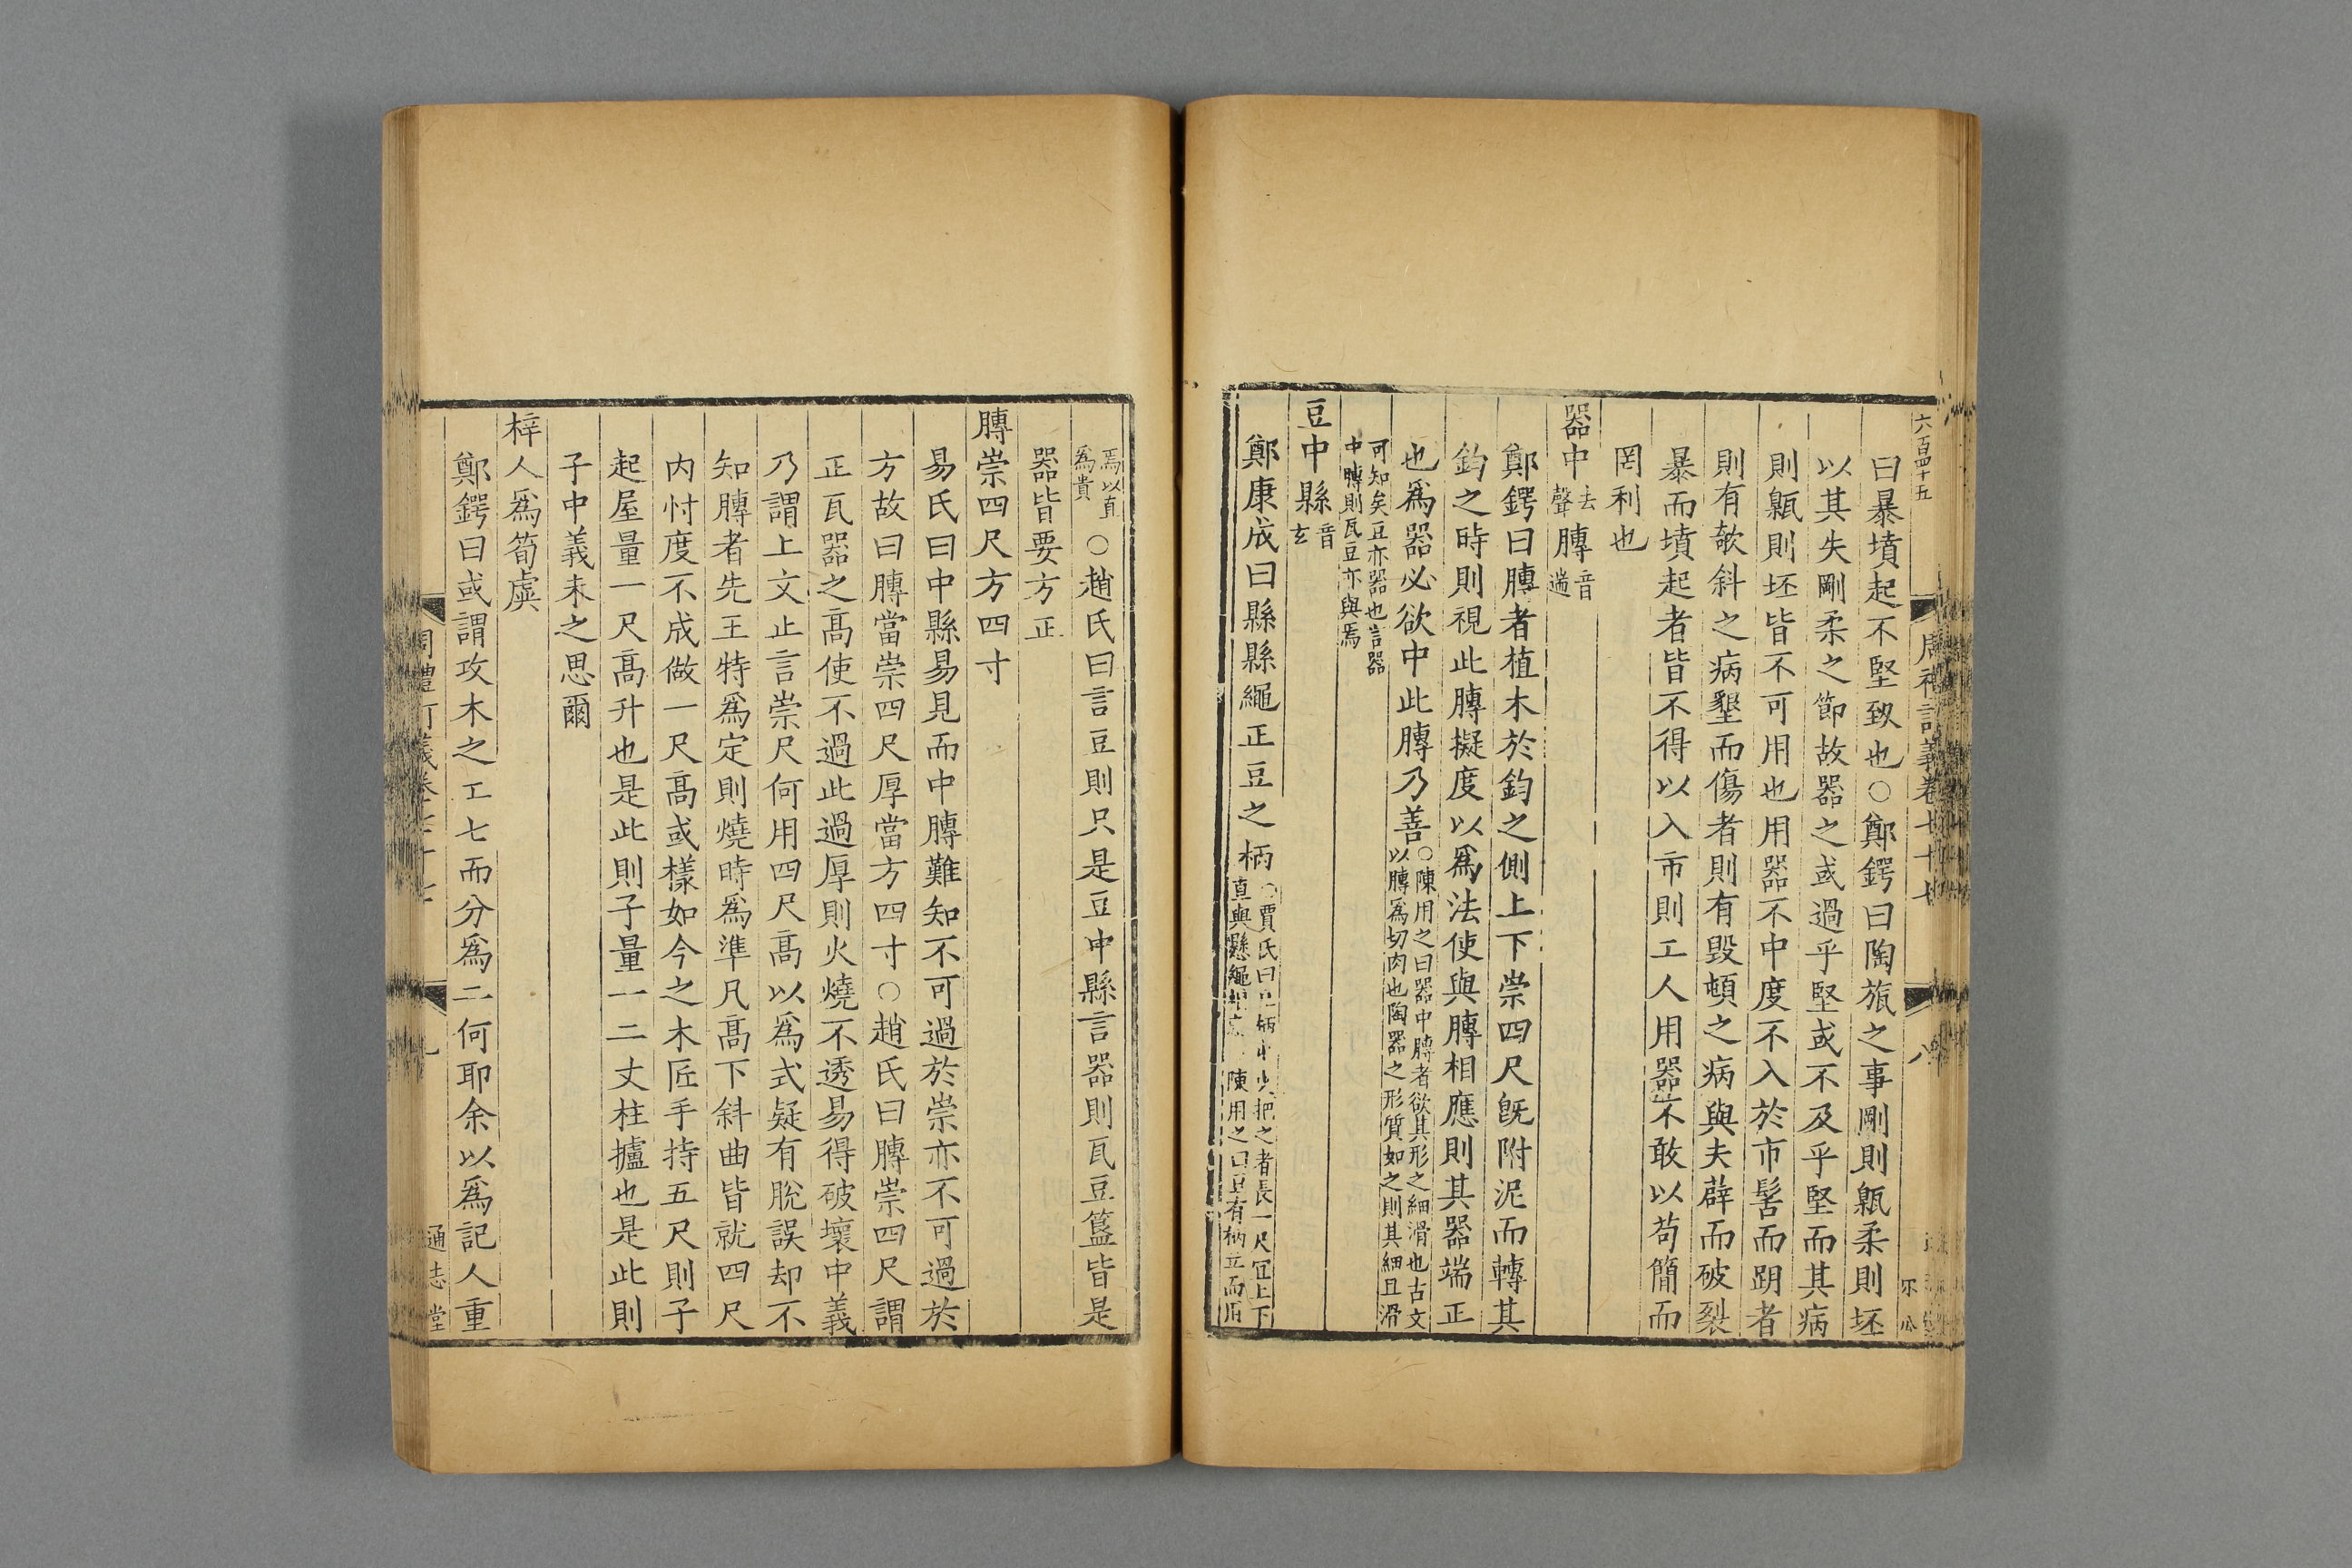 六百四十五
周禮訂義卷七十七
八
曰暴墳起不堅致也○鄭鍔曰陶瓬之事剛則甈柔則坯
以其失剛柔之節故器之或過乎堅或不及乎堅而其病
則甈則坯皆不可用也用器不中度不入於市髺而跀者
則有欹斜之病墾而傷者則有毀頓之病與夫薜而破裂
暴而墳起者皆不得以入市則工人用器不敢以苟簡而
罔利也
器中去聲膞音遄
鄭鍔曰膊者植木於鈞之側上下崇四尺旣附泥而轉其
鈞之時則視此膊擬度以爲法使與膊相應則其器端正
也爲器必欲中此膊乃善○陳用之曰器中膊者欲其形之細滑也古文
以膊爲切肉也陶器之形質如之則其細且滑
可知矣豆亦器也言器
中膊則瓦豆亦與焉
豆中縣音玄
鄭康成曰縣縣繩正豆之柄○賈氏曰豆柄中央把之者長一尺宜上下
直與懸繩相應 陳用之曰豆有柄立而居
焉以直
爲貴
○趙氏曰言豆則只是豆中縣言器則瓦豆簋皆是
器皆要方正
膞崇四尺方四寸
易氏曰中縣易見而中膊難知不可過於崇亦不可過於
方故曰膊當崇四尺厚當方四寸○趙氏曰膊崇四尺謂
正瓦器之髙使不過此過厚則火燒不透易得破壞中義
乃謂上文止言崇尺何用四尺髙以爲式疑有脫誤却不
知膊者先王特爲定則燒時爲準凡髙下斜曲皆就四尺
内忖度不成做一尺髙或樣如今之木匠手持五尺則子
起屋量一尺髙升也是此則子量一二丈柱攎也是此則
子中義未之思爾
梓人爲筍虡
鄭鍔曰或謂攻木之工七而分爲二何耶余以爲記人重
通志堂